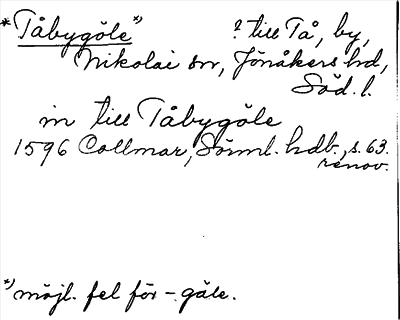 *Tåbygöle*) ? till Tå, by,
Nikolai sn, Jönåkers hd,
Söd. l.
in till Tåbygöle
1596 Collmar, Sörml. hdb., s. 63.
renov.
*) möjl. fel för -gåle.